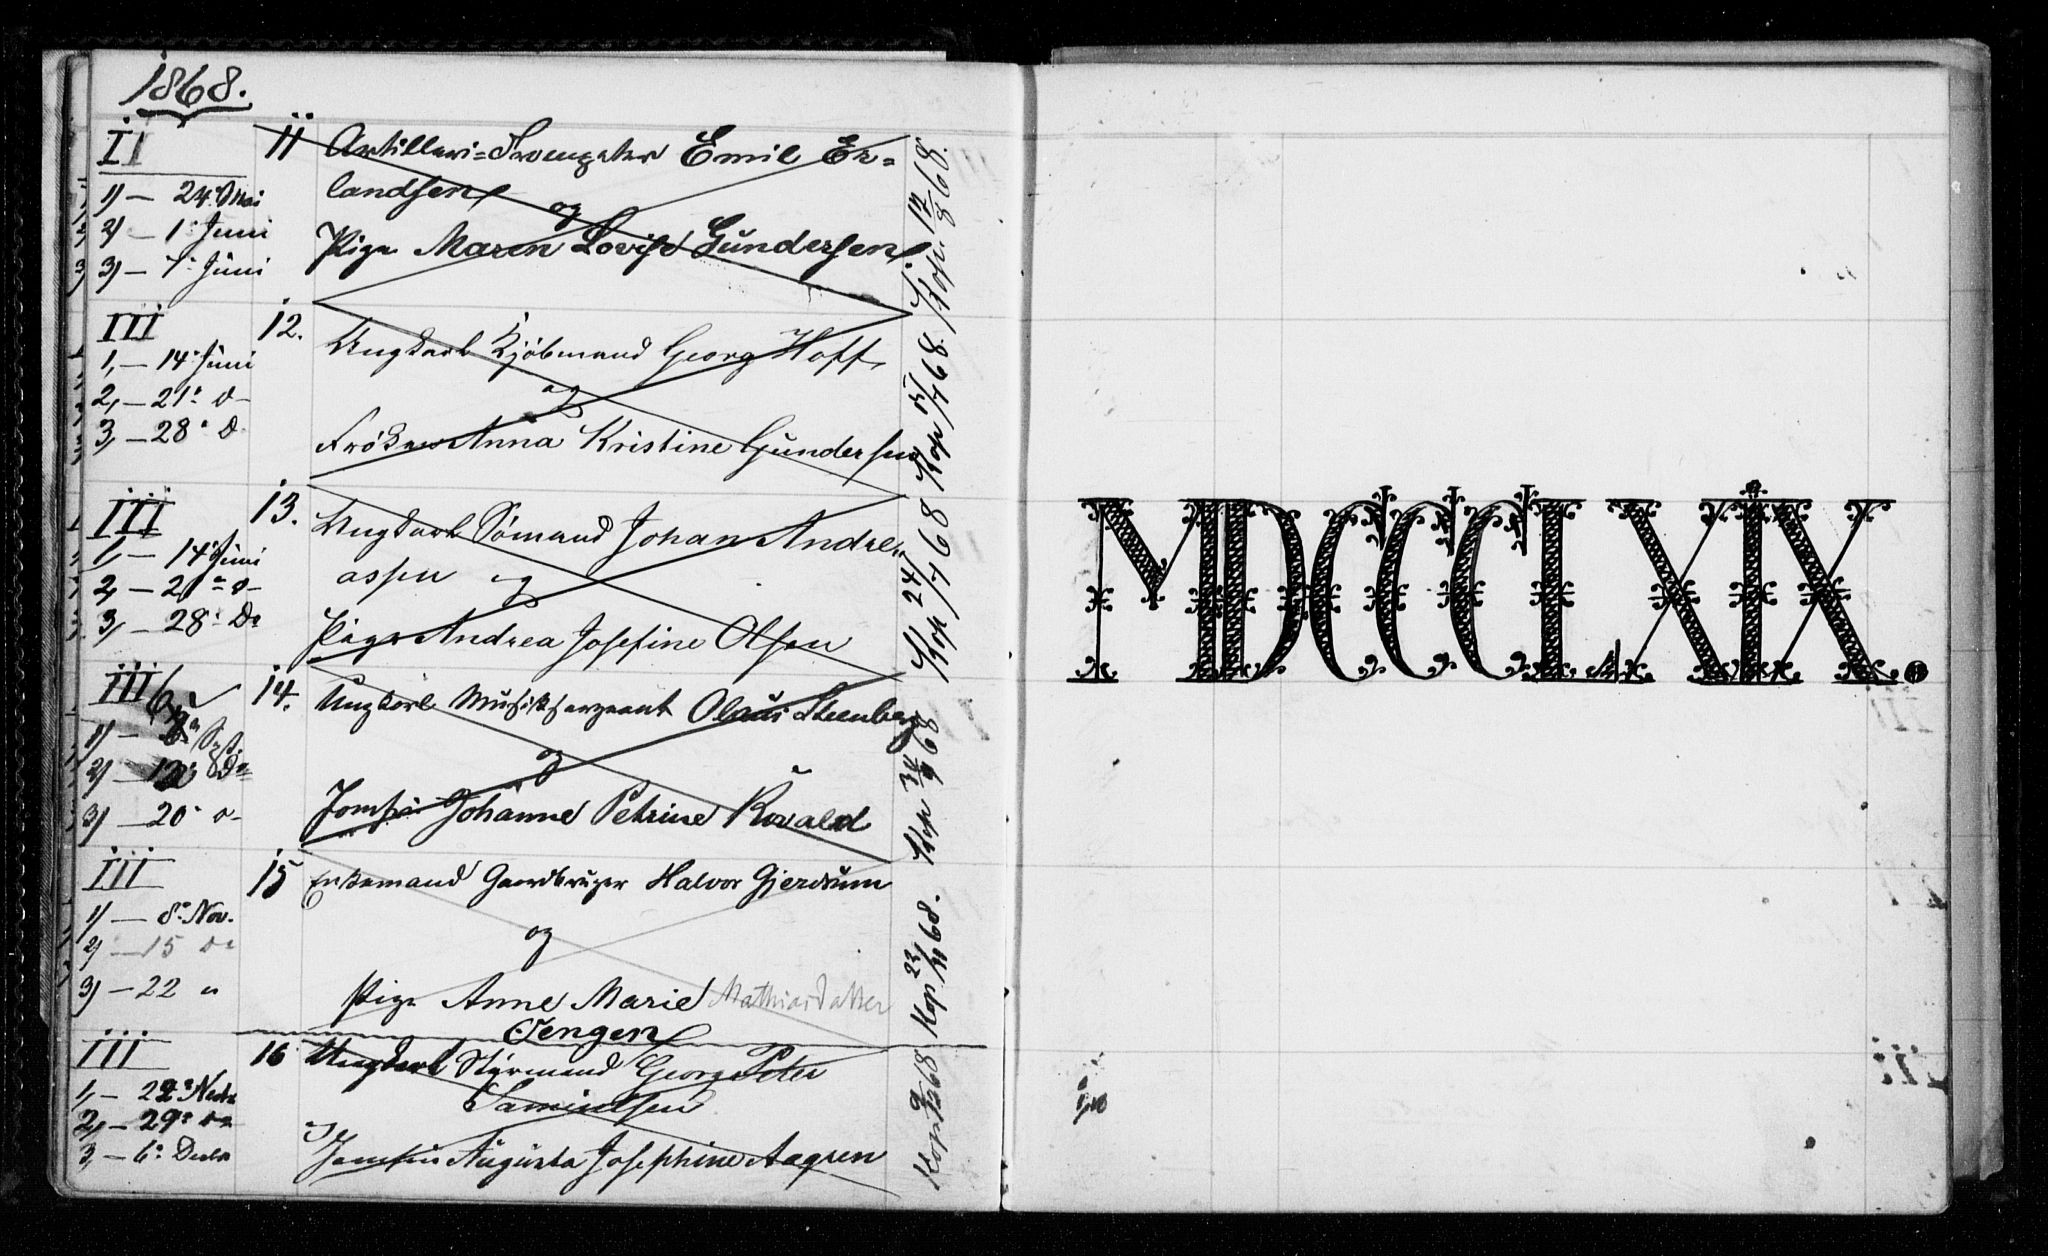 1868.
II 11 Artilleri=Trompeter Emil Er=
landsen
1) — 24. Mai
og
2) — 1. Juni
Pige Maren Lovise Gundersen
3) — 7. Juni
Kop. 17/8 68.
III 12.
Ungkarl Kjöbmand Georg Hoff
1, — 14. Juni
og
2, — 21. d—
3, — 28. d.
Fröken Anna Kristine Gundersen
Kop /7 68.
III 13.
Ungkarl Sömand Johan Andre=
1, — 14. Juni
assen og
2, — 21. d—
3, — 28. Do
Pige Andrea Josefine Olsen
Kop 24/7 68
III 14.
Ungkarl Musiksergeant Olaus Steenberg
1) — Sept.
og
2) — Do
3) — 20. d—
Jomfr. Johanne Petrine Rovald
Kop 68
III 15
Enkemand Gaardbruger Halvor Gjerdrum
1) — 8. Nov.
og
2) — 15 do
3) — 22 "
Pige Anne Marie Mathiasdatter
Tengen
Kop 22/11 68.
III 16
Ungkarl Styrmand Georg Peter
1, — 22. Novbr
Samuelsen
2, — 29. do
3, — 6. Decbr
Jomfru Augusta Josephine Aagren
Kop 9/12 68
MDCCCLXIX.